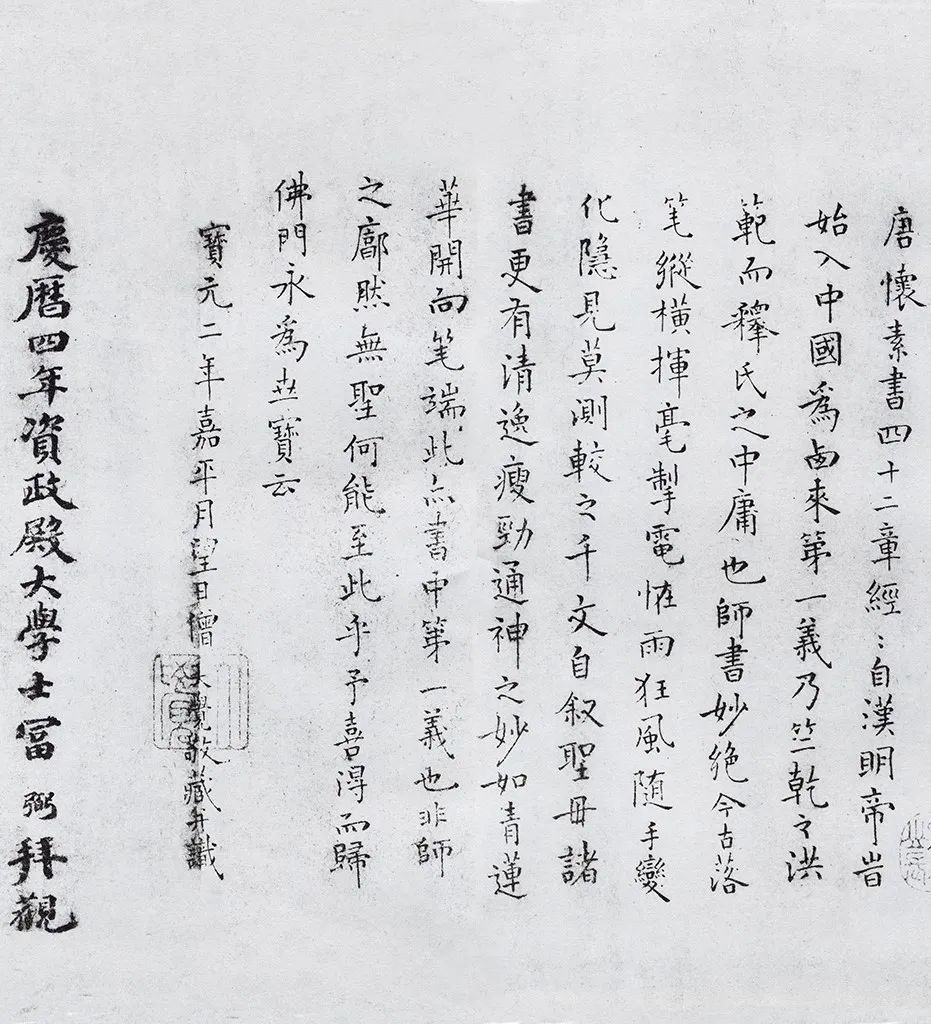 唐懷素書四十二章經:自漢明帝旹
始入中國爲卥來第一義乃竺乾之洪
範而釋氏之中庸也師書妙絶今古落
笔縱横揮毫掣電恠雨狂風随手變
化隱見莫測較之千文自叙聖毋諸
書更有清逸瘦勁通神之妙如青蓮
華開向笔端此亦書中第一義也非師
之廓然無聖何能至此乎予喜淂而歸
佛門永爲世寶云
寶元二年嘉平月望日僧大覺敬藏并識
慶曆四年資政殿大學士冨弼拜觀